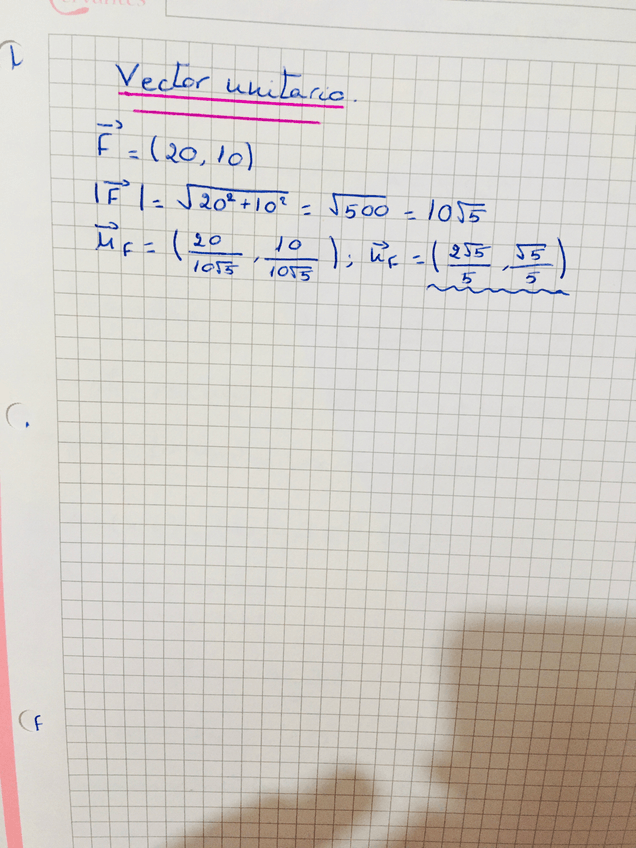 Vector unitario.
F⃗ = (20, 10)
|F⃗| = √(20² + 10²) = √500 = 10√5
μ⃗_F = (20/10√5, 10/10√5); μ⃗_F = (2√5/5, √5/5)
F